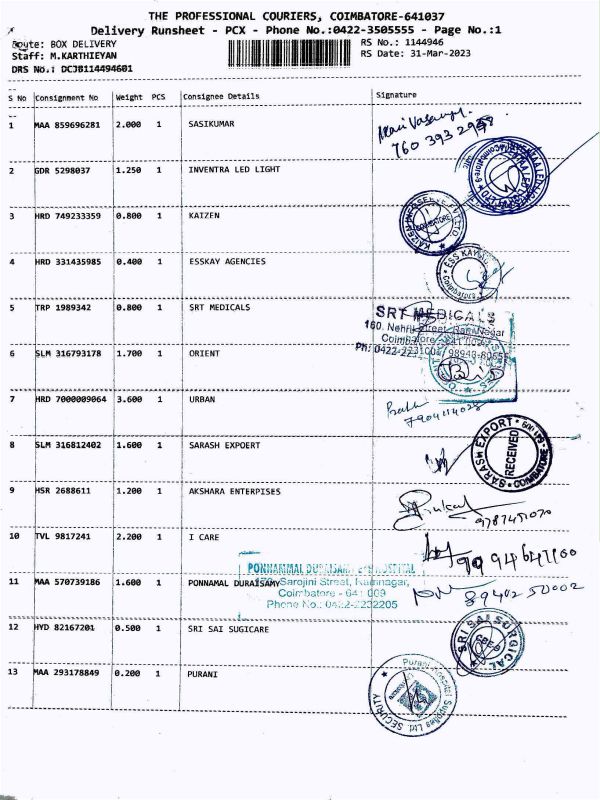 THE PROFESSIONAL COURIERS, COIMBATORE-641037
Delivery Runsheet - PCX - Phone No.:0422-3505555 - Page No.:1
Route: BOX DELIVERY
RS No.: 1144946
Staff: M.KARTHIEYAN
RS Date: 31-Mar-2023
DRS No.: DCJB114494601
S No Consignment No Weight PCS Consignee Details Signature
1 MAA 859696281 2.000 1 SASIKUMAR
2 GDR 5298037 1.250 1 INVENTRA LED LIGHT
3 HRD 749233359 0.800 1 KAIZEN
4 HRD 331435985 0.400 1 ESSKAY AGENCIES
5 TRP 1989342 0.800 1 SRT MEDICALS
SRT MEDICALS
160, Nehru Street, Ram Nagar
Coimbatore
6 SLM 316793178 1.700 1 ORIENT
7 HRD 7000009064 3.600 1 URBAN
8 SLM 316812402 1.600 1 SARASH EXPOERT
SARASH EXPORT
RECEIVED
COIMBATORE
9 HSR 2688611 1.200 1 AKSHARA ENTERPISES
10 TVL 9817241 2.200 1 I CARE
PONNAMMAL DURAISAMY HOSPITAL
11 MAA 570739186 1.600 1 PONNAMAL DURAISAMY
Sarojini Street, Ramnagar,
Coimbatore - 641 009
Phone No.: 0422-2232205
89402 50002
12 HYD 82167201 0.500 1 SRI SAI SUGICARE
SRI SAI SURGICAL
13 MAA 293178849 0.200 1 PURANI
Purani Hospital Supplies Ltd.
SECURITY